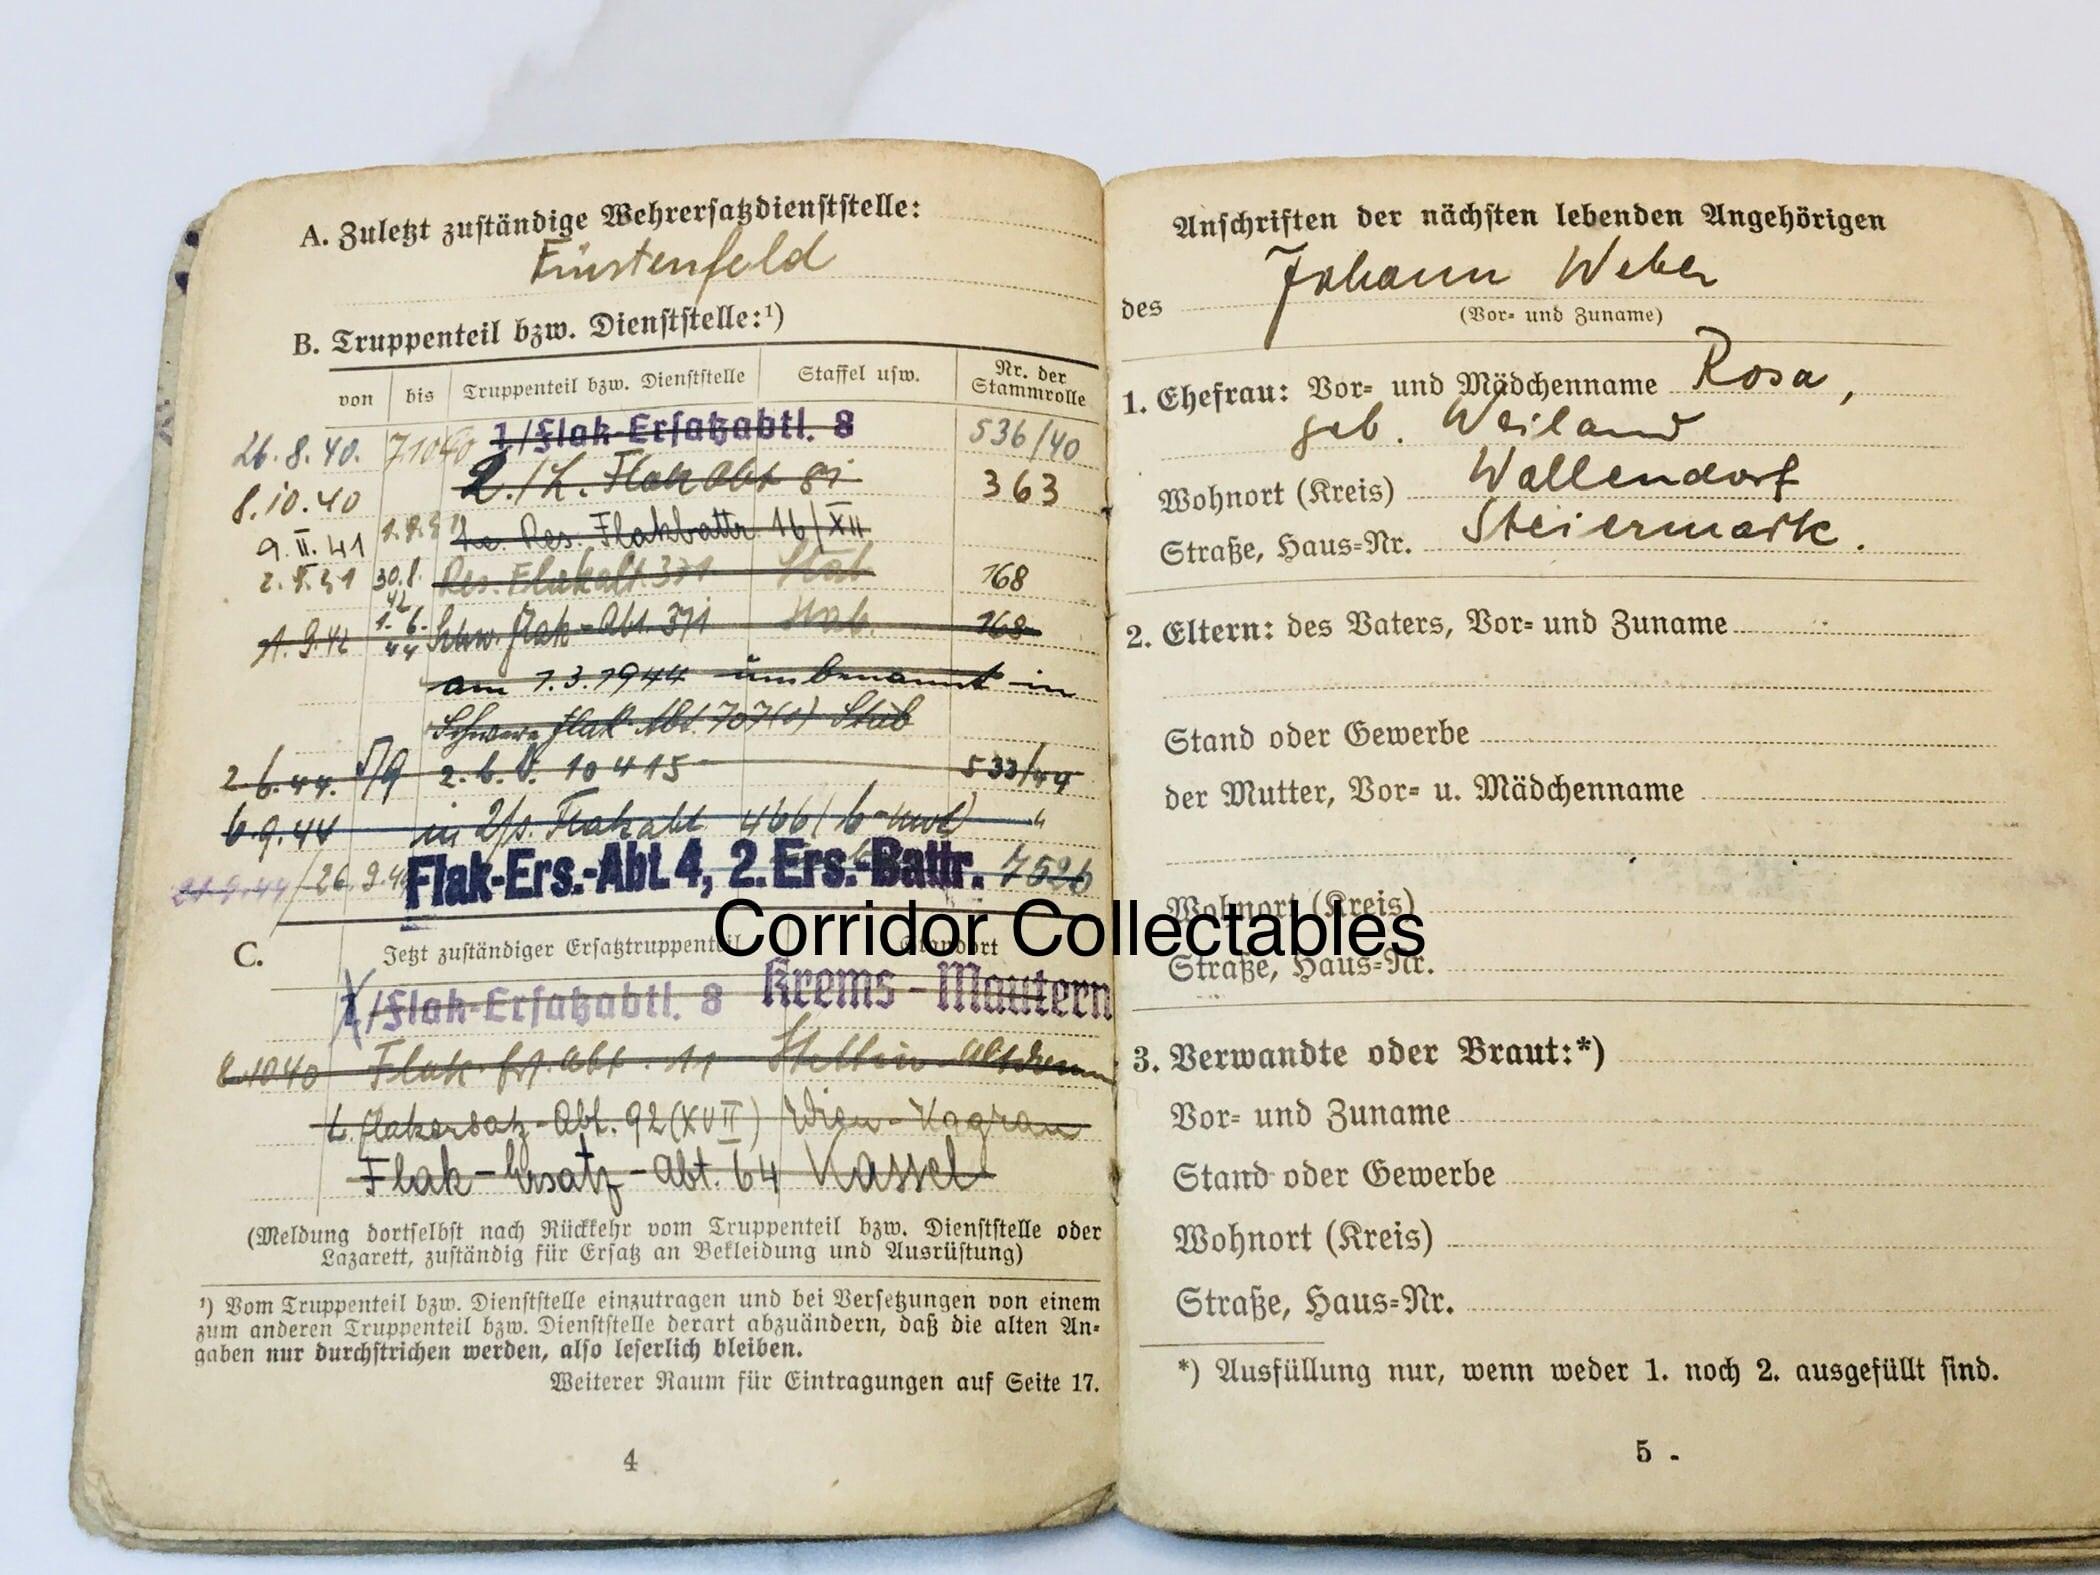 A. Zuletzt zuständige Wehrersatzdienststelle:
Fürstenfeld
B. Truppenteil bzw. Dienststelle:¹)
von bis Truppenteil bzw. Dienststelle Staffel usw. Nr. der Stammrolle
26.8.40. 71040 1/Flak-Ersatzabtl. 8 536/40
8.10.40 2./L. Flak Abt 363
9.II.41 Le. Res. Flakbattr. 16/XII
30.8.42 Res. Flakabt. 371 Stab 168
1.9.42 1.6.44 Schw. Flak-Abt. 371 Stab. 168
am 1.3.1944 umbenannt in
Schwere Flak Abt 707(o) Stab
2.6.44. 5/9 z.b.V. 10415 533/44
6.9.44 in Flakabt 466 "
26.9.44 Flak-Ers.-Abt. 4, 2. Ers.-Battr. 7526
Corridor Collectables
C. Jetzt zuständiger Ersatztruppenteil Standort
1/Flak-Ersatzabtl. 8 Krems - Mautern
8.1040 Flak Ers. Abt. 11 Stettin Altdamm
L. Flakersatz-Abt. 92 (XVII) Wien-Kagran
Flak-Ersatz-Abt. 64 Kassel
(Meldung dortselbst nach Rückkehr vom Truppenteil bzw. Dienststelle oder
Lazarett, zuständig für Ersatz an Bekleidung und Ausrüstung)
¹) Vom Truppenteil bzw. Dienststelle einzutragen und bei Versetzungen von einem
zum anderen Truppenteil bzw. Dienststelle derart abzuändern, daß die alten An-
gaben nur durchstrichen werden, also leserlich bleiben.
Weiterer Raum für Eintragungen auf Seite 17.
4
Anschriften der nächsten lebenden Angehörigen
des Johann Weber
(Vor- und Zuname)
1. Ehefrau: Vor- und Mädchenname Rosa,
geb. Weiland
Wohnort (Kreis) Wallendorf
Straße, Haus-Nr. Steiermark.
2. Eltern: des Vaters, Vor- und Zuname
Stand oder Gewerbe
der Mutter, Vor- u. Mädchenname
Wohnort (Kreis)
Straße, Haus-Nr.
3. Verwandte oder Braut:*)
Vor- und Zuname
Stand oder Gewerbe
Wohnort (Kreis)
Straße, Haus-Nr.
*) Ausfüllung nur, wenn weder 1. noch 2. ausgefüllt sind.
5